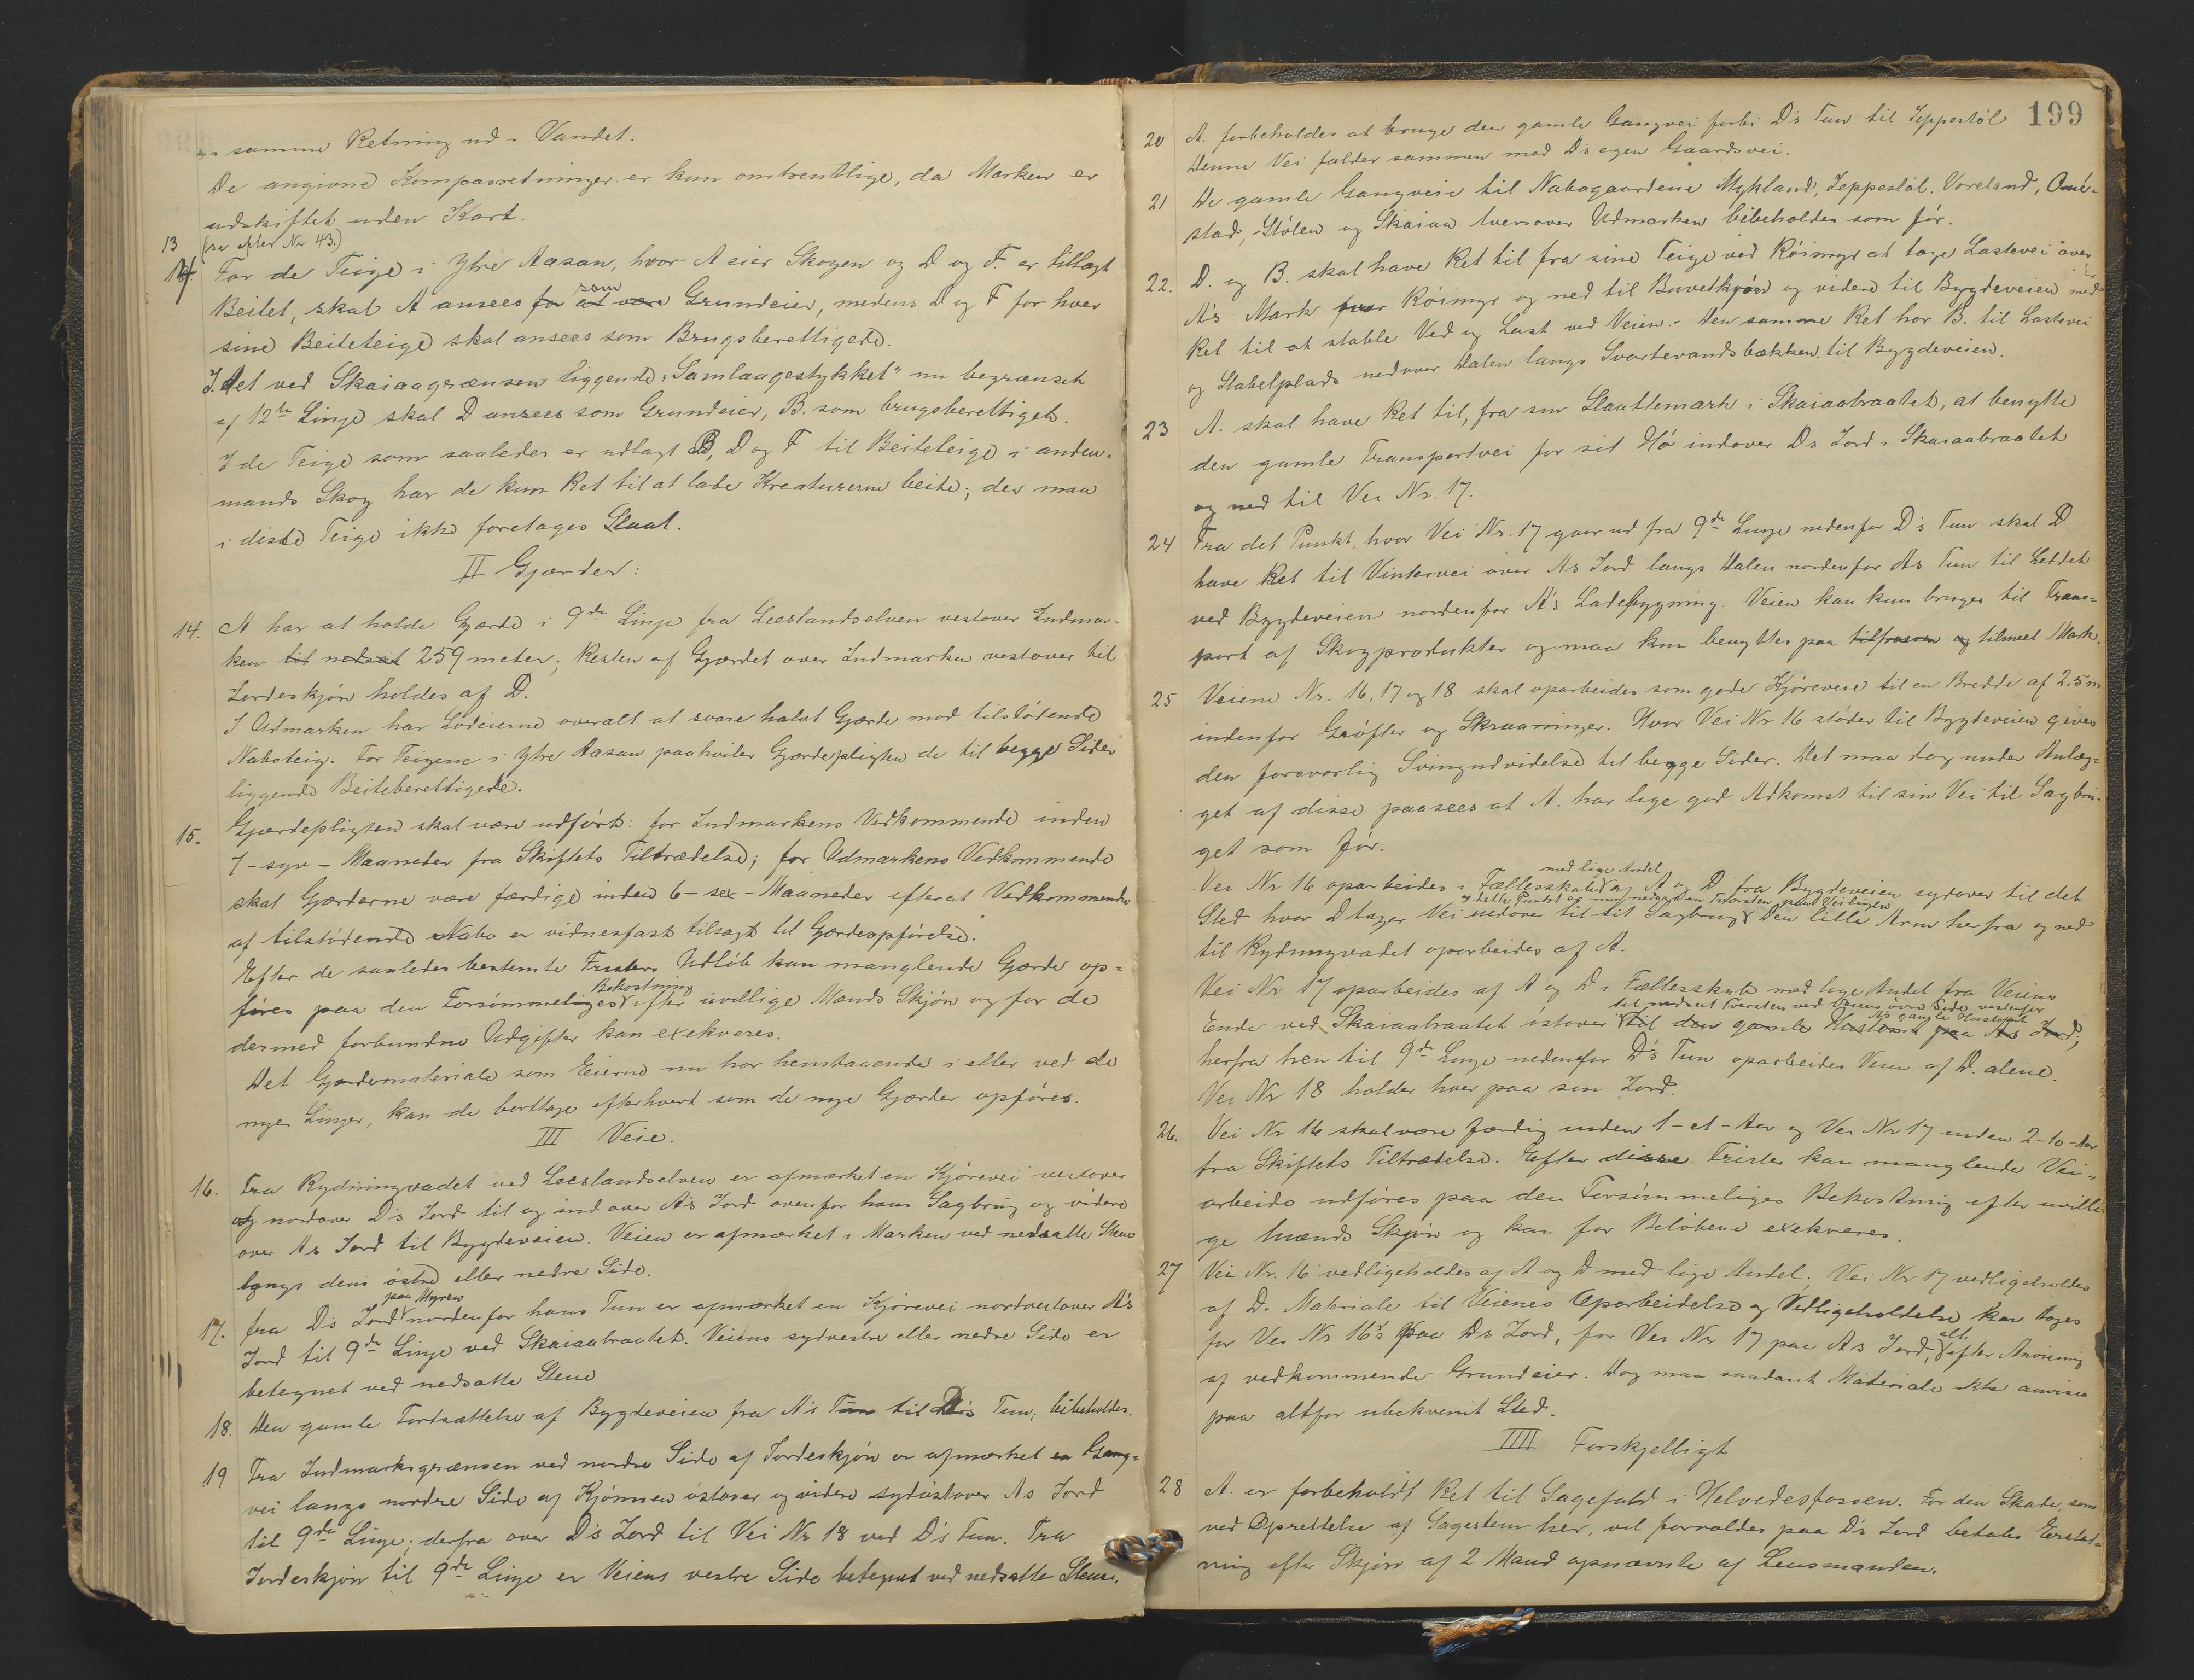 samme Retning ud i Vandet.
De angivne Kompasretninger er kun omtrentlige, da Marken er
udskiftet uden Kart.
13 (se efter Nr 43.)
14 For de Teige i Ytre Aasan, hvor A eier Skogen og D og F. er tillagt
Beitet, skal A ansees for at være som Grundeier, medens D og F for hver
sine Beiteteige skal ansees som Brugsberettigede.
I det ved Skaiaagrænsen liggende "Samlaagestykket" nu begrænset
af 12te Linje skal D ansees som Grundeier, B. som brugsberettiget.
I de Teige som saaledes er udlagt B, D og F til Beiteteige i anden-
mands Skog har de kun Ret til at lade Kreaturerne beite; der maa
i disse Teige ikke foretages Slaat.
II Gjærder:
14. A har at holde Gjærde i 9de Linje fra Leeslandselven vestover Indmar-
ken til nedsat 259 meter; Resten af Gjærdet over Indmarken vestover til
Jordeskjøn holdes af D.
I Udmarken har Lodeierne overalt at svare halvt Gjærde mod tilstødende
Naboteig. For Teigene i Ytre Aasan paahviler Gjærdepligten de til begge Sider
liggende Beiteberettigede.
15. Gjærdepligten skal være udført: for Indmarkens Vedkommende inden
7-syv-Maaneder fra Skiftets Tiltrædelse; for Udmarkens Vedkommende
skal Gjærderne være færdige inden 6-sex-Maaneder efterat Vedkommende
af tilstødende Nabo er vidnesfast tilsagt til Gjærdesopførelse.
Efter de saaledes bestemte Fristers Udløb kan manglende Gjærde op-
føres paa den Forsømmeliges Bekostning efter uvillige Mænds Skjøn og for de
dermed forbundne Udgifter kan exekveres.
Det Gjærdemateriale som Eierne nu har henstaaende i eller ved de
nye Linjer, kan de borttage efterhvert som de nye Gjærder opføres.
III Veie.
16. Fra Rydningvadet ved Leeslandselven er afmærket en Kjørevei vestover
og nordover D's Jord til og ind over A's Jord ovenfor hans Sagbrug og videre
over A's Jord til Bygdeveien. Veien er afmærket i Marken ved nedsatte Stene
langs dens østre eller nedre Side.
17. fra D's Jord paa Myren nordenfor hans Tun er afmærket en Kjørevei nordvestover A's
Jord til 9de Linje ved Skaiaabraatet. Veiens sydvestre eller nedre Side er
betegnet ved nedsatte Stene
18. Den gamle Fortsættelse af Bygdeveien fra A's Tun til D's Tun, bibeholdes.
19 Fra Indmarksgrænsen ved nordre Side af Jordeskjøn er afmærket en Gang-
vei langs nordre Side af Kjønnen østover og videre sydøstover A's Jord
til 9de Linje; derfra over D's Jord til Vei Nr 18 ved D's Tun. Fra
Jordeskjøn til 9de Linje er Veiens vestre Side betegnet ved nedsatte Stene.
199
20 A. forbeholdes at bruge den gamle Gangvei forbi D's Tun til Jeppestøl
Denne Vei falder sammen med D's egen Gaardsvei.
21 De gamle Gangveie til Nabogaardene Mykland, Jeppestøl, Voreland,
stad, Stølen og Skaiaa tversover Udmarken bibeholdes som før.
22. D. og B. skal have Ret til fra sine Teige ved Røimyr at tage Lastevei over
A's Mark over Røimyr og ned til Buvetkjøn og videre til Bygdeveien med
Ret til at stable Ved og Last ved Veien.- Den samme Ret har B. til Lastevei
og Stabelplads nedover Dalen langs Svartevandsbækken til Bygdeveien.
23 A. skal have Ret til, fra sin Slaattemark i Skaiaabraatet, at benytte
den gamle Transportvei for sit Hø indover D's Jord i Skaiaabraatet
og ned til Vei Nr. 17.
24 Fra det Punkt, hvor Vei Nr. 17 gaar ud fra 9de Linje nedenfor D's Tun skal D
have Ret til Vintervei over A's Jord langs Dalen nordenfor A's Tun til Leddet
ved Bygdeveien nordenfor A's Ladebygning. Veien kan kun bruges til Trans-
port af Skogprodukter og maa kun benyttes paa tilfrossen og tilsneet Mark.
25 Veiene Nr. 16, 17 og 18 skal oparbeides som gode Kjøreveie til en Bredde af 2.5 m
indenfor Grøfter og Skraaninger. Hvor Vei Nr 16 støder til Bygdeveien gives
den forsvarlig Svingudvidelse til begge Sider. Det maa dog under Anlæg-
get af disse paasees at A. har lige god Adkomst til sin Vei til Sagbru-
get som før.
Vei Nr 16 oparbeides i Fællesskab med lige Andel af A og D fra Bygdeveien sydover til det
Sted hvor D tager Vei nedover til sit Sagbrug. I dette Punkt er nu nedsat en Tversten paa Veilinjen Den lille Arm herfra og ned
til Rydningvadet oparbeides af A.
Vei Nr 17 oparbeides af A og D i Fællesskab med lige Andel fra Veiens
Ende ved Skaiaabraatet østover til nedsat Tversten ved Veiens øvre Side vestenfor A's gamle Hustomt til den gamle Hustomt paa A's Jord;
herfra hen til 9de Linje nedenfor D's Tun oparbeides Veien af D. alene.
Vei Nr 18 holder hver paa sin Jord.
26. Vei Nr 16 skal være færdig inden 1-et-Aar og Vei Nr 17 inden 2-to-Aar
fra Skiftets Tiltrædelse. Efter disse Frister kan manglende Vei-
arbeide udføres paa den Forsømmeliges Bekostning efter uvilli-
ge Mænds Skjøn og kan for Beløbene exekveres.
27 Vei Nr. 16 vedligeholdes af A og D med lige Andel; Vei Nr 17 vedligeholdes
af D. Materiale til Veienes Oparbeidelse og Vedligeholdelse kan tages
for Vei Nr 16's paa D's Jord, for Vei Nr 17 paa A's Jord, alt efter Anvisning
af vedkommende Grundeier. Dog maa saadant Materiale ikke anvises
paa altfor ubekvemt Sted.
IIII Forskjelligt
28 A. er forbeholdt Ret til Sagefald i Helvedesfossen. For den Skade, som
ved Oprettelse af Sagestem her, vil forvoldes paa D's Jord betales Erstat-
ning efter Skjøn af 2 Mand opnævnte af Lensmanden.